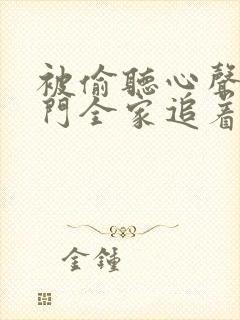 被偷聽心聲
門全家追着
金鍾